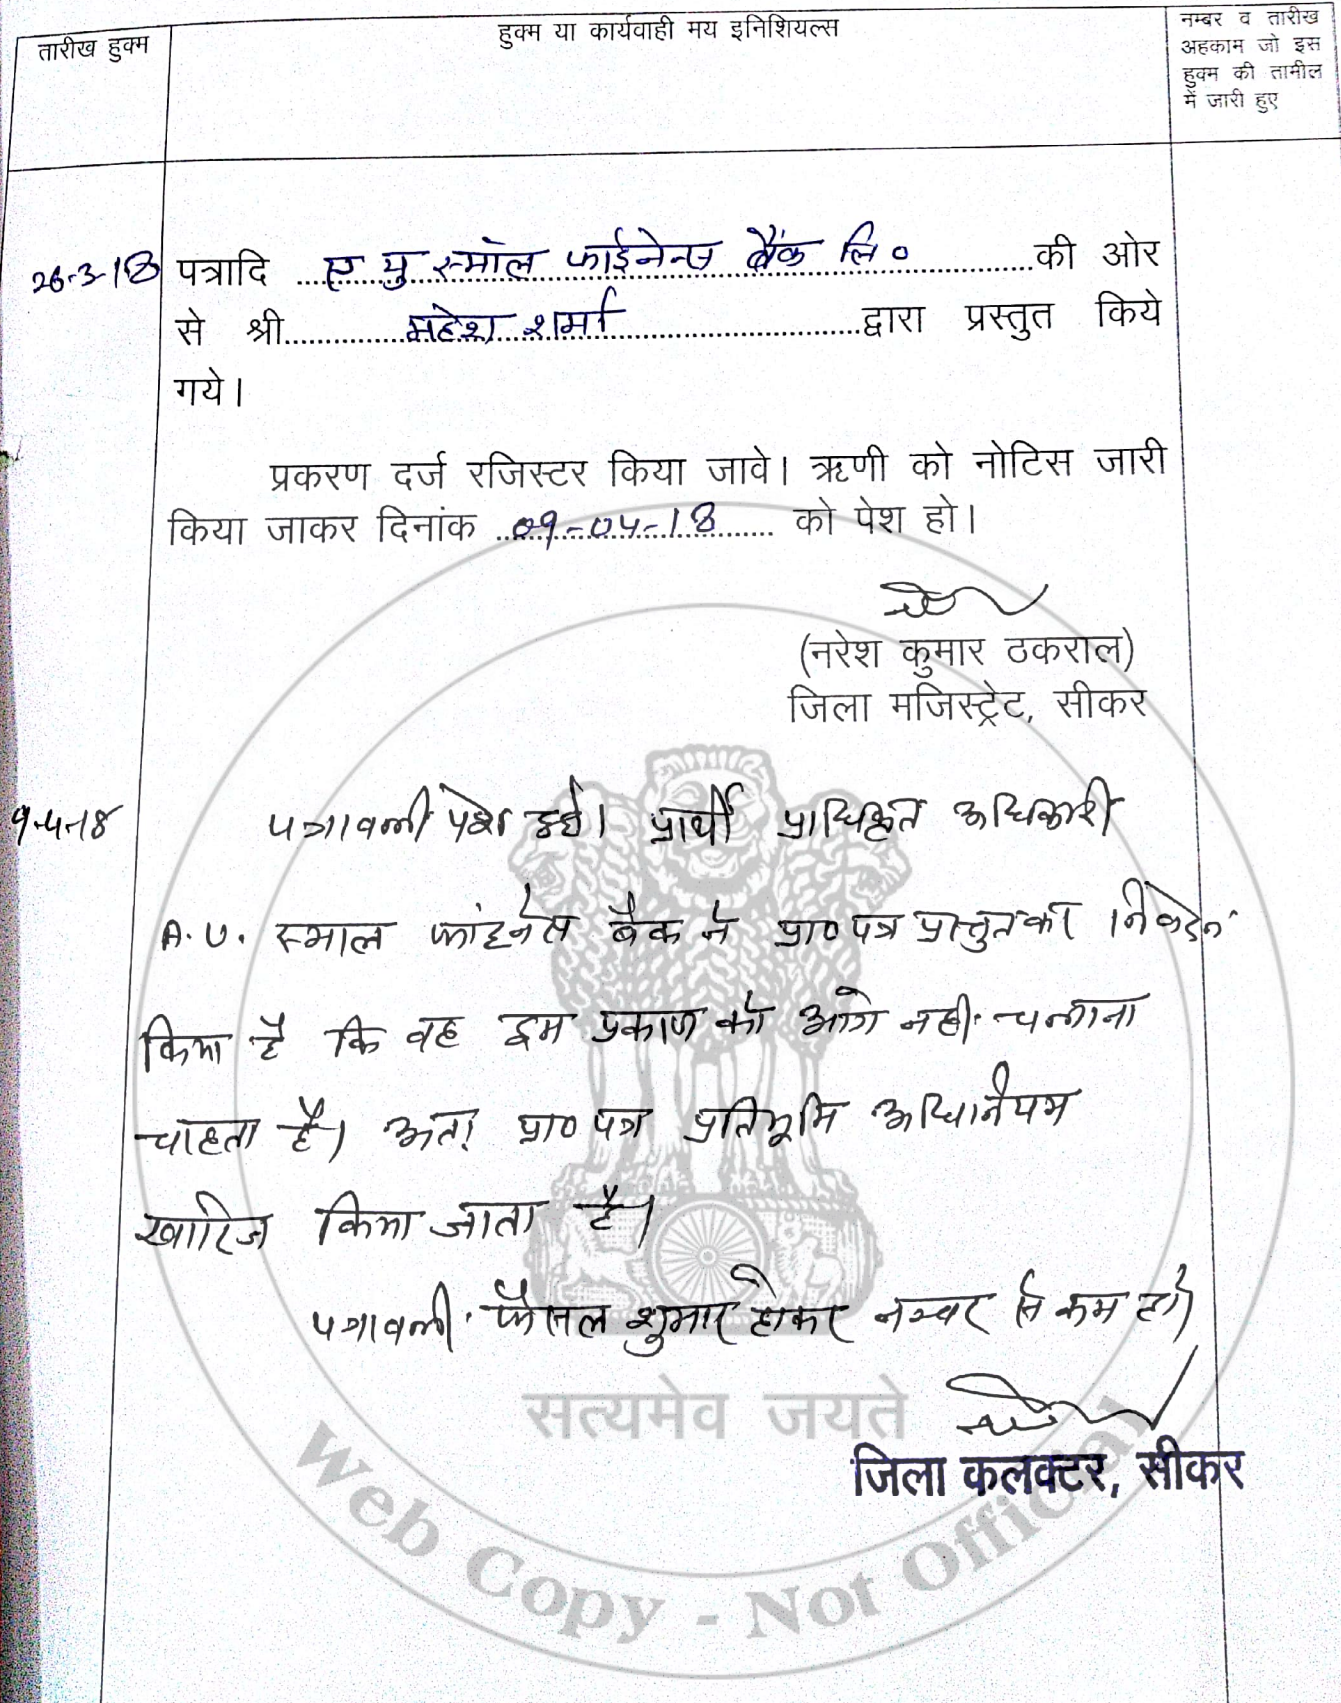 तारीख हुक्म
हुक्म या कार्यवाही मय इनिशियल्स
नम्बर व तारीख
अहकाम जो इस
हुक्म की तामील
में जारी हुए
26-3-18 पत्रादि ए यु स्मॉल फाईनेन्स बैंक लि० की ओर
से श्री महेश शर्मा द्वारा प्रस्तुत किये
गये।
प्रकरण दर्ज रजिस्टर किया जावे। ऋणी को नोटिस जारी
किया जाकर दिनांक 09-04-18 को पेश हो।
(नरेश कुमार ठकराल)
जिला मजिस्ट्रेट, सीकर
9-4-18 पत्रावली पेश हुई। प्रार्थी प्राधिकृत अधिकारी
A.U. स्माल फांइनेंस बैंक ने प्रा० पत्र प्रस्तुत कर निवेदन
किया है कि वह इस प्रकरण को आगे नहीं चलाना
चाहता है। अतः प्रा० पत्र प्रतिभूति अधिनियम
खारिज किया जाता है।
पत्रावली फैसल शुमार होकर नम्बर से कम हो।
सत्यमेव जयते
जिला कलक्टर, सीकर
Web Copy - Not Official